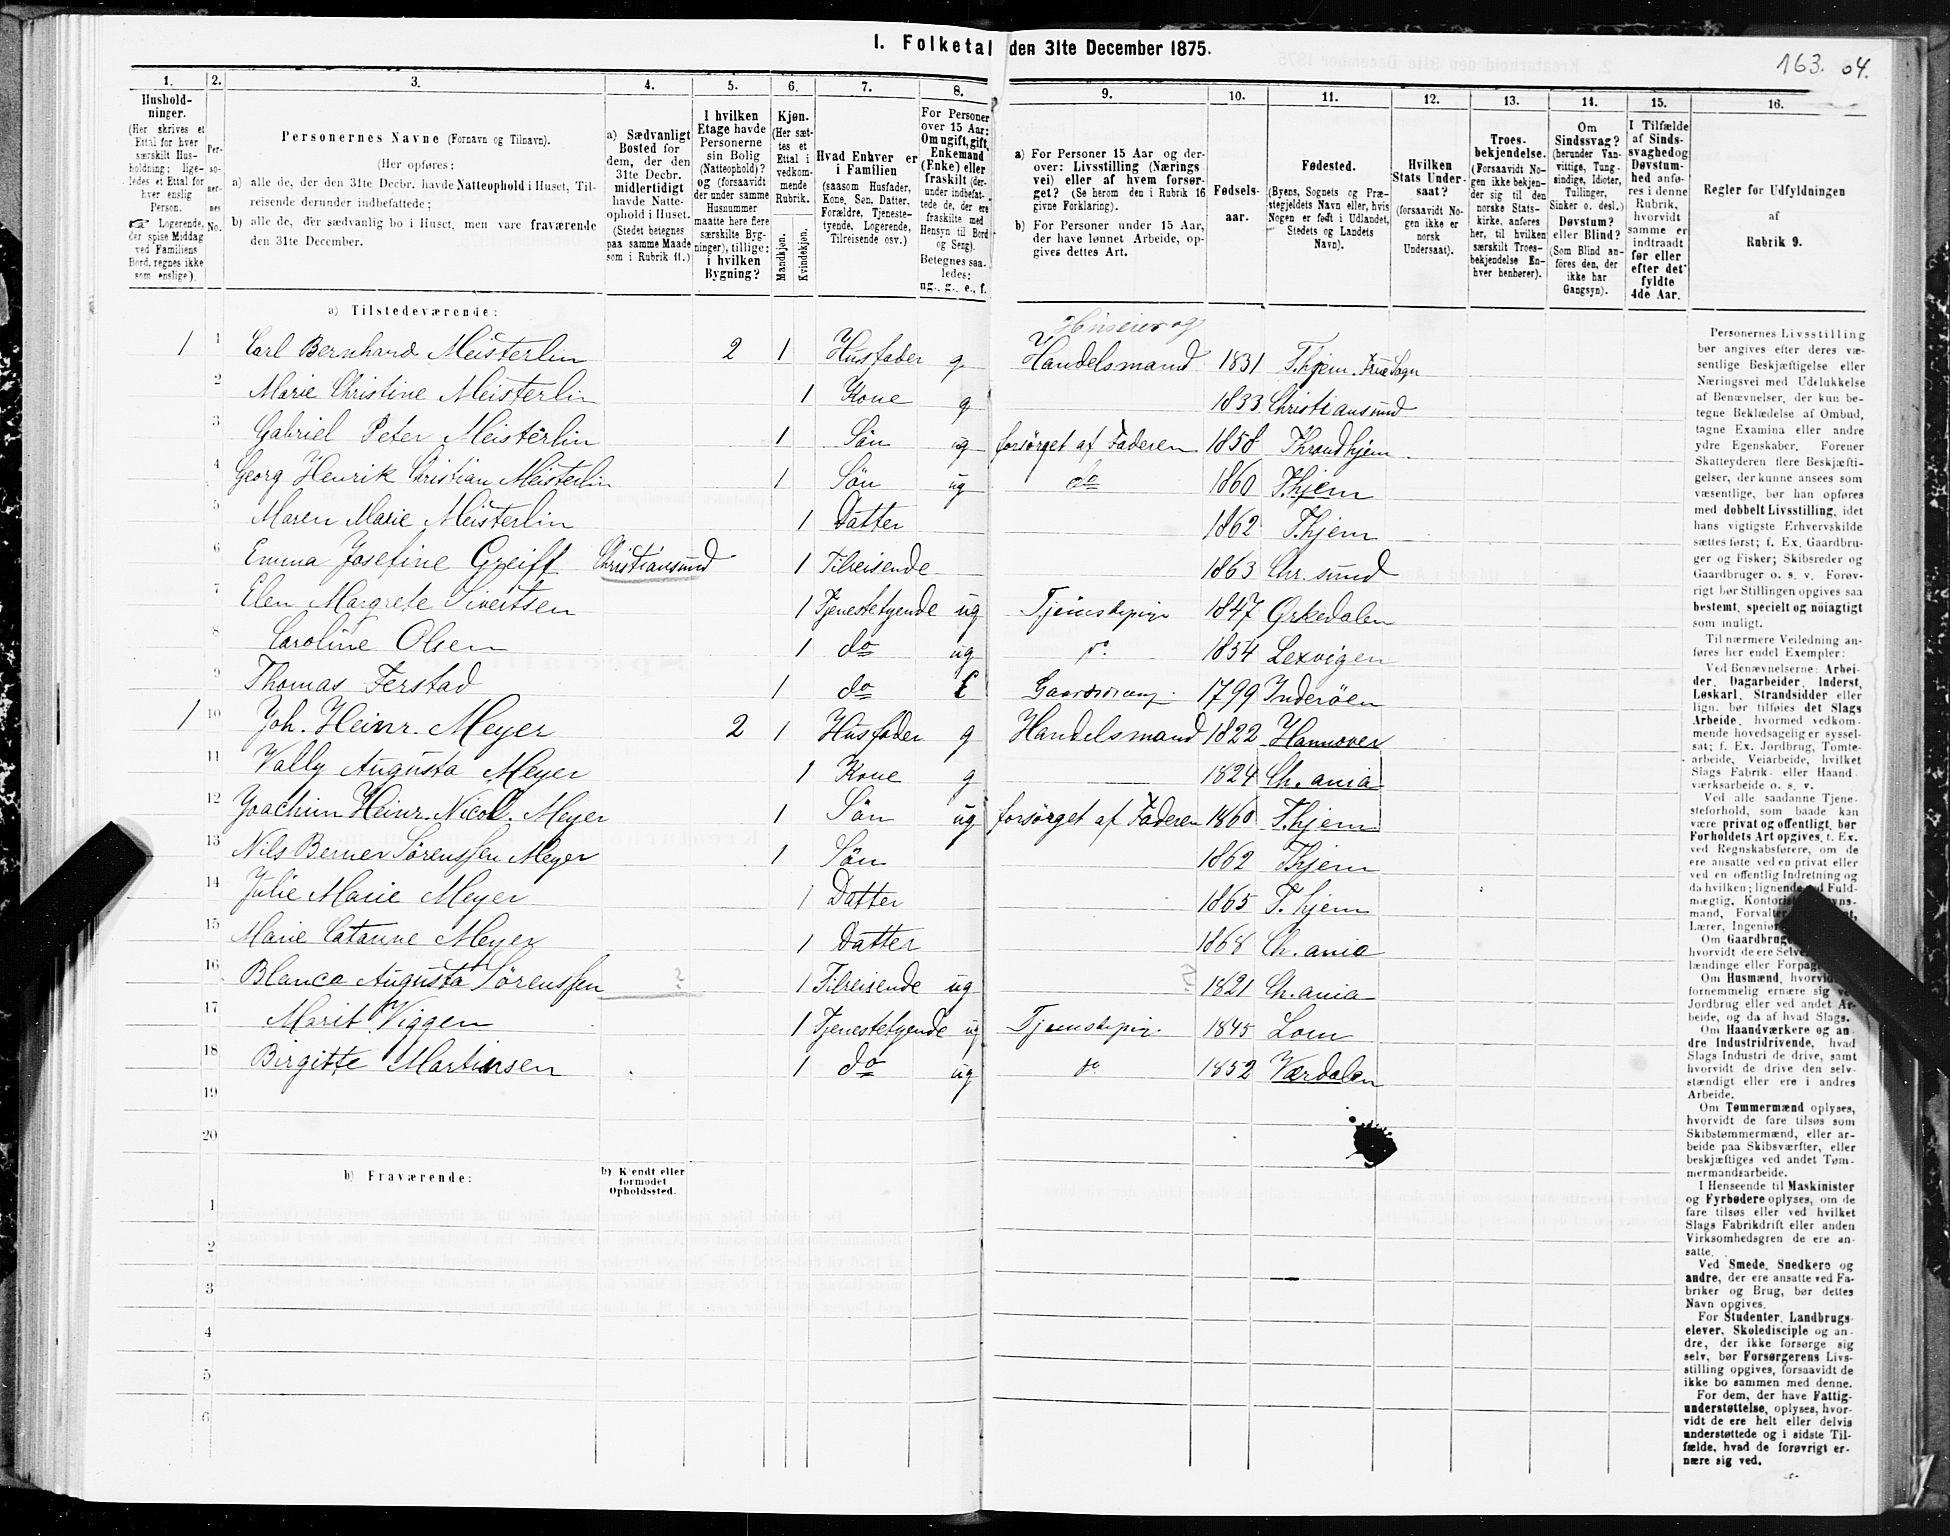 I. Folketal den 31te December 1875.
163. 04.
1. 2. 3. 4. 5. 6. 7. 8. 9. 10. 11. 12. 13. 14. 15. 16.
Hushold-
ninger.
(Her skrives et
Ettal for hver
særskilt Hus-
holdning; lige-
ledes et Ettal for
hver enslig
Person.
☞ Logerende,
der spise Middag
ved Familiens
Bord, regnes ikke
som enslige).
Per-
so-
ner-
nes
No.
Personernes Navne (Fornavn og Tilnavn).
(Her opføres:
a) alle de, der den 31te Decbr. havde Natteophold i Huset, Til-
reisende derunder indbefattede;
b) alle de, der sædvanlig bo i Huset, men vare fraværende
den 31te December.
a) Sædvanligt
Bosted for
dem, der den
31te Decbr.
midlertidigt
havde Natte-
ophold i Huset.
(Stedet betegnes
paa samme Maade
som i Rubrik 11.)
I hvilken
Etage havde
Personerne
sin Bolig
(Natteophold)?
og (forsaavidt
der under samme
Husnummer
maatte høre flere
særskilte Byg-
ninger), tillige:
i hvilken
Bygning?
Kjøn.
(Her sæt-
tes et
Ettal i
vedkom-
mende
Rubrik.
Mandkjøn.
Kvindekjøn.
Hvad Enhver er
i Familien
(saasom Husfader,
Kone, Søn, Datter,
Forældre, Tjeneste-
tyende, Logerende,
Tilreisende osv.)
For Personer
over 15 Aar:
Om ugift, gift,
Enkemand
(Enke) eller
fraskilt (der-
under indbefat-
tede de, der ere
fraskilte med
Hensyn til Bord
og Seng).
Betegnes saa-
ledes:
ug., g., e., f.
a) For Personer 15 Aar og der-
over: Livsstilling (Nærings
vei) eller af hvem forsør-
get? (Se herom den i Rubrik 16
givne Forklaring).
b) For Personer under 15 Aar,
der have lønnet Arbeide, op-
gives dettes Art.
Fødsels-
aar.
Fødested.
(Byens, Sognets og Præ-
stegjeldets Navn eller, hvis
Nogen er født i Udlandet,
Stedets og Landets
Navn).
Hvilken
Stats Under-
saat?
(forsaavidt No-
gen ikke er
norsk
Undersaat).
Troes-
bekjendelse.
(Forsaavidt No-
gen ikke bekjen-
der sig til den
norske Stats-
kirke, anføres
her, til hvilken
særskilt Troes-
bekjendelse En-
hver henhører).
Om
Sindssvag?
(herunder Van-
vittige, Tung-
sindige, Idioter,
Tullinger,
Sinker o. desl.)
Døvstum?
eller Blind?
(Som Blind an-
føres den, der
ikke har
Gangsyn).
I Tilfælde
af Sinds-
svaghed og
Døvstum-
hed anfø-
res i denne
Rubrik,
hvorvidt
samme er
indtraadt
før eller
efter det
fyldte
4de Aar.
Regler før Udfyldningen
af
Rubrik 9.
a) Tilstedeværende:
Huseier og
1 1 Carl Bernhard Meisterlin 2 1 Husfader g Handelsmand 1831 T.hjem. Frue Sogn
2 Marie Christine Meisterlin 1 Kone g 1833 Christiansund
3 Gabriel Peter Meisterlin 1 Søn ug forsørget af Faderen 1858 Throndhjem
4 Georg Henrik Christian Meisterlin 1 Søn ug do 1860 T.hjem
5 Maren Marie Meisterlin 1 Datter 1862 T.hjem
6 Emma Josefine Greift Christiansund 1 Tilreisende 1863 Chr. sund
7 Elen Margrete Sivertsen 1 Tjenestetyende ug Tjenestepige 1847 Ørkedalen
8 Caroline Olsen 1 do ug do 1854 Lexvigen
9 Thomas Ferstad 1 do E 1799 Inderøen
1 10 Joh. Heinr. Meyer 2 1 Husfader g Handelsmand 1822 Hannover
11 Vally Augusta Meyer 1 Kone g 1824 Ch.ania
12 Joachim Heinr. Nicol. Meyer 1 Søn ug forsørget af Faderen 1860 T.hjem
13 Nils Berner Sørenssen Meyer 1 Søn 1862 T.hjem
14 Julie Marie Meyer 1 Datter 1865 T.hjem
15 Marie Catarine Meyer 1 Datter 1868 Ch.ania
16 Blanca Augusta Sørenssen ? 1 Tilreisende ug ? 1821 Ch.ania
17 Marit Viggen 1 Tjenestetyende ug Tjenestepige 1845 Lom
18 Birgitte Martinsen 1 do ug do 1852 Værdalen
19
20
b) Fraværende:
b) Kjendt eller
formodet
Opholdssted.
1
2
3
4
5
6
Personernes Livsstilling
bør angives efter deres væ-
sentlige Beskjæftigelse eller
Næringsvei med Udelukkelse
af Benævnelser, der kun be-
tegne Beklædelse af Ombud,
tagne Examina eller andre
ydre Egenskaber. Forener
Skatteyderen flere Beskjæfti-
gelser, der kunne ansees som
væsentlige, bør han opføres
med dobbelt Livsstilling, idet
hans vigtigste Erhvervskilde
sættes først; f. Ex. Gaardbru-
ger og Fisker; Skibsreder og
Gaardbruger o. s. v. Forøv-
rigt bør Stillingen opgives saa
bestemt, specielt og nöiagtigt
som muligt.
Til nærmere Veiledning an-
føres her endel Exempler:
Ved Benævnelserne: Arbei-
der, Dagarbeider, Inderst,
Løskarl, Strandsidder eller
lign. bør tilføies det Slags
Arbeide, hvormed vedkom-
mende hovedsagelig er syssel-
sat; f. Ex. Jordbrug, Tomte-
arbeide, Veiarbeide, hvilket
Slags Fabrik- eller Haand-
værksarbeide o. s. v.
Ved alle saadanne Tjene-
steforhold, som baade kan
være privat og offentligt, bør
Forholdets Art opgives, t. Ex.
ved Regnskabsførere, om de
ere ansatte ved en privat eller
ved en offentlig Indretning og
da hvilken; lignende ved Fuld-
mægtig,
mand,
Lærer,
Om Gaardbrug
hvorvidt de ere
lændinge eller
Om Husmænd,
fornemmelig ernære sig
Jordbrug eller ved andet Ar-
beide, og da af hvad Slags.
Om Haandværkere og an-
dre Industridrivende, hvad
Slags Industri de drive, samt
hvorvidt de drive den selv-
stændigt eller ere i andres
Arbeide.
Om Tømmermænd oplyses,
hvorvidt de fare tilsøs som
Skibstømmermænd, eller ar-
beide paa Skibsværfter, eller
beskjæftiges ved andet Tøm-
mermandsarbeide.
I Henseende til Maskinister
og Fyrbødere oplyses, om de
fare tilsøs eller ved hvilket
Slags Fabrikdrift eller anden
Virksomhedsgren de ere an-
satte.
Ved Smede, Snedkere og
andre, der ere ansatte ved Fa-
briker og Brug, bør dettes
Navn opgives.
For Studenter, Landbrugs-
elever, Skoledisciple og an-
dre, der ikke forsørge sig
selv, bør Forsørgerens Livs-
stilling opgives, forsaavidt de
ikke bo sammen med denne.
For dem, der have Fattig-
understøttelse, oplyses, hvor-
vidt de ere helt eller delvis
understøttede og i sidste Til-
fælde, hvad de forøvrigt er-
nære sig ved.